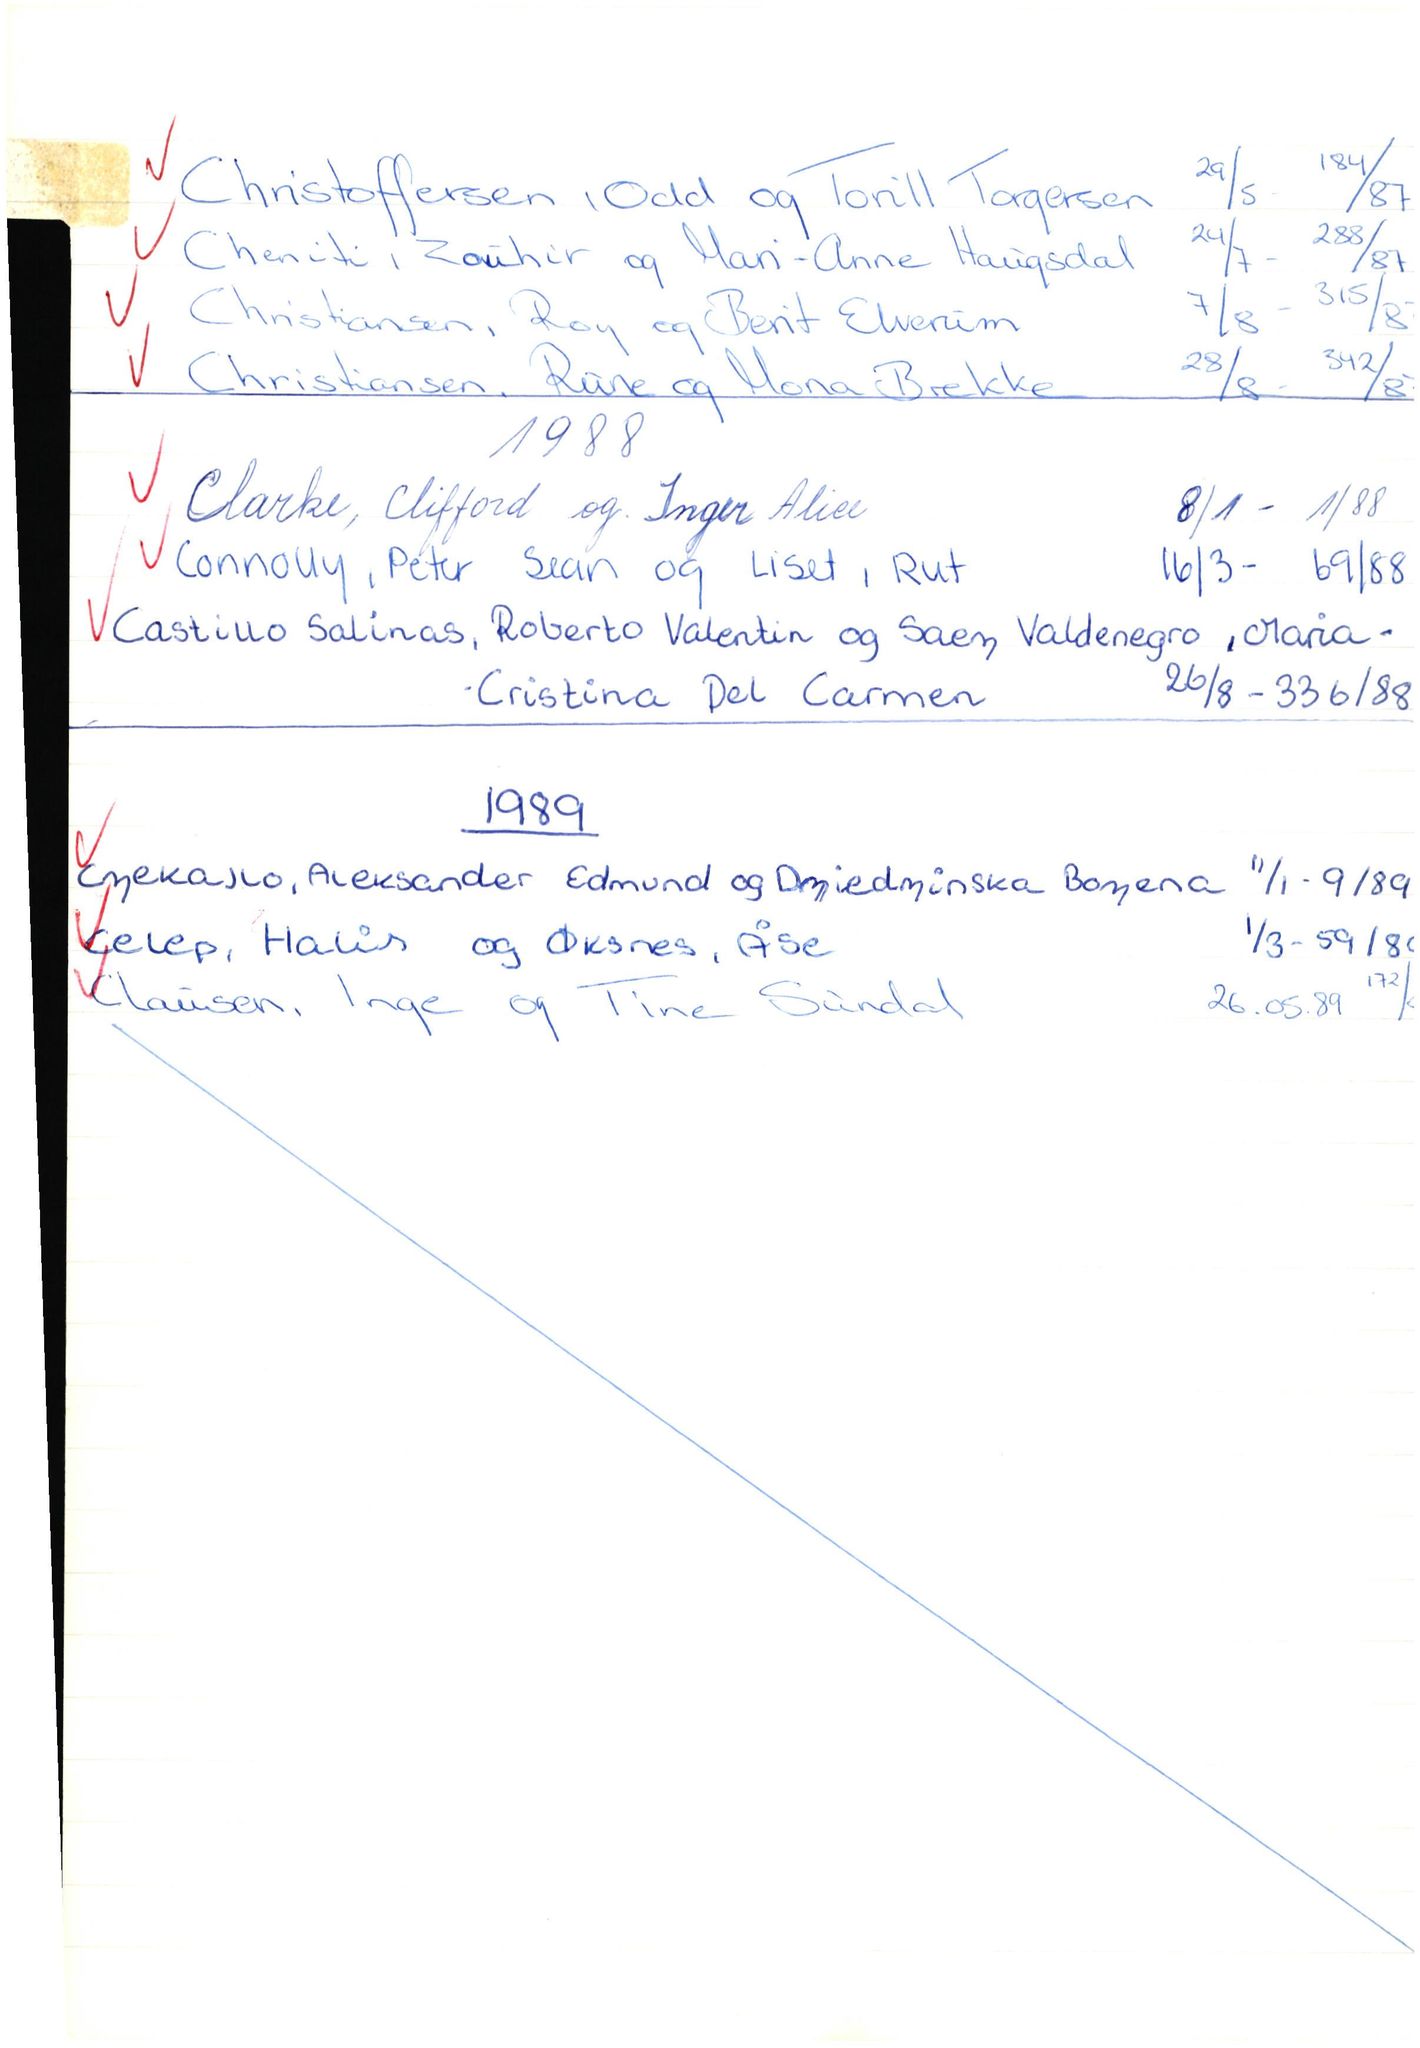 Christoffersen, Odd og Torill Torgersen 29/5 - 184/87
Cheniti, Zouhir og Mari-Anne Haugsdal 24/7 - 288/87
Christiansen, Roy og Berit Elverum 7/8 - 315/8
Christiansen, Rune og Mona Brekke 28/8 - 342/8
1988
Clarke, Clifford og. Inger Alice 8/1 - 1/88
Connolly, Peter Sean og Liset, Rut 16/3 - 69/88
Castillo Salinas, Roberto Valentin og Saez Valdenegro, Maria-
-Cristina Del Carmen 26/8 - 336/88
1989
Czekajlo, Aleksander Edmund og Dziedzinska Bozena 11/1 - 9/89
Celep, Halis og Øksnes, Åse 1/3 - 59/8
Clausen, Inge og Tine Sundal 26.05.89 172/